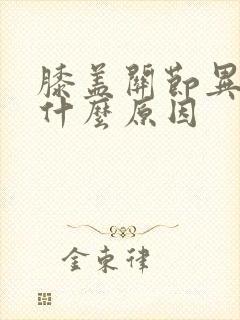 膝盖關節異
什麼原因
金東律